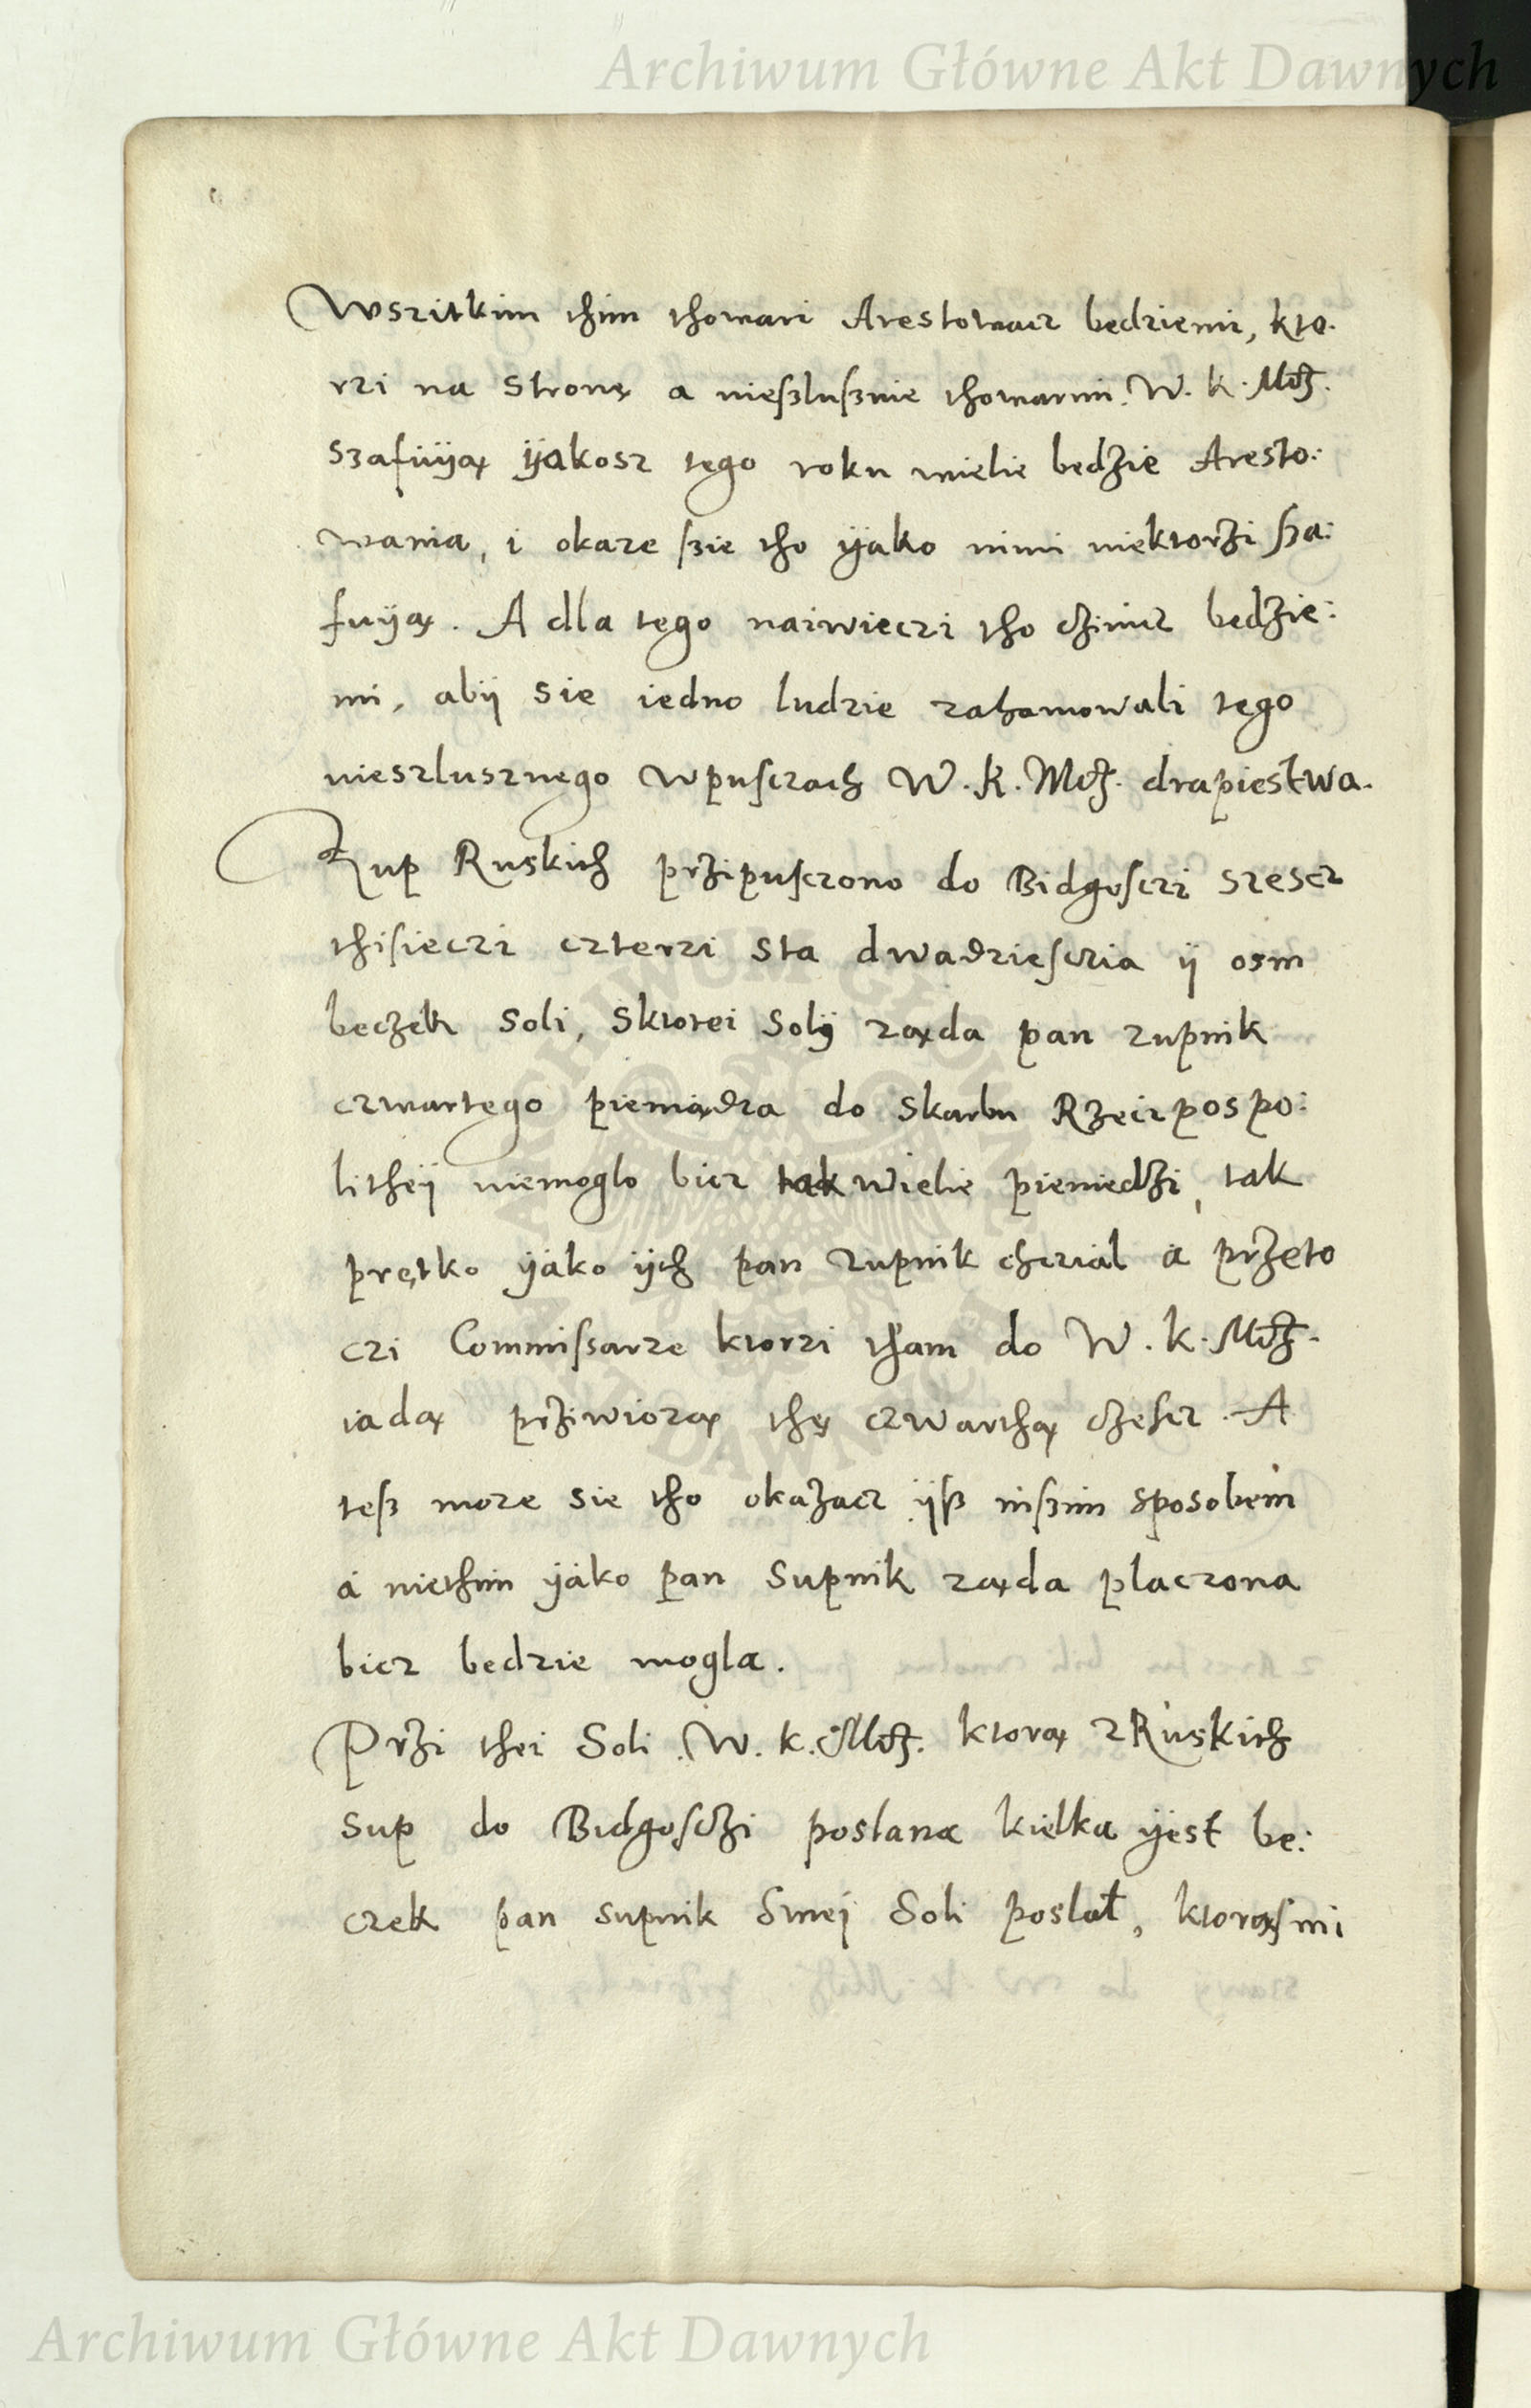 Archiwum Główne Akt Dawnych
Wszitkim thim thowari Arestowacz bedziemi, kto.
rzi na stronę a nießlußnie thowarmi. W. K. Mcz.
szafuÿą ÿakosz tego roku wielie bedzie Aresto:
wania, i okaze ßie tho ÿako nimi niektorzi ßa:
fuÿą. A dla tego naiwieczi tho czinicz bedzie:
mi, abÿ sie iedno ludzie zahamowali tego
nieszlusznego wpusczach W. K. Mcz. drapiestwa.
Zup Ruskich przipusczono do Bidgosczi szescz
thisieczi czterzi sta dwadziesczia ÿ osm
beczek soli, sktorei solÿ ząda pan zupnik
czwartego pieniądza do skarbu Rzeczpospo:
litheÿ niemoglo bicz tak wielie pieniedzi, tak
prętko ÿako ÿch pan zupnik chczial a przeto
czi Commissarze ktorzi tham do W. K. Mcz.
iadą prziwiozą thę czwarthą czescz. A
teß moze sie tho okazacz ÿß inßim sposobem
a niethim ÿako pan supnik ząda placzona
bicz bedzie mogla.
Przi thei Soli. W. K. Mcz. ktorą zRuskich
sup do Bidgosczi poslana kielka ÿest be:
czek pan supnik Swej Soli poslał, ktorąsmi
Archiwum Główne Akt Dawnych